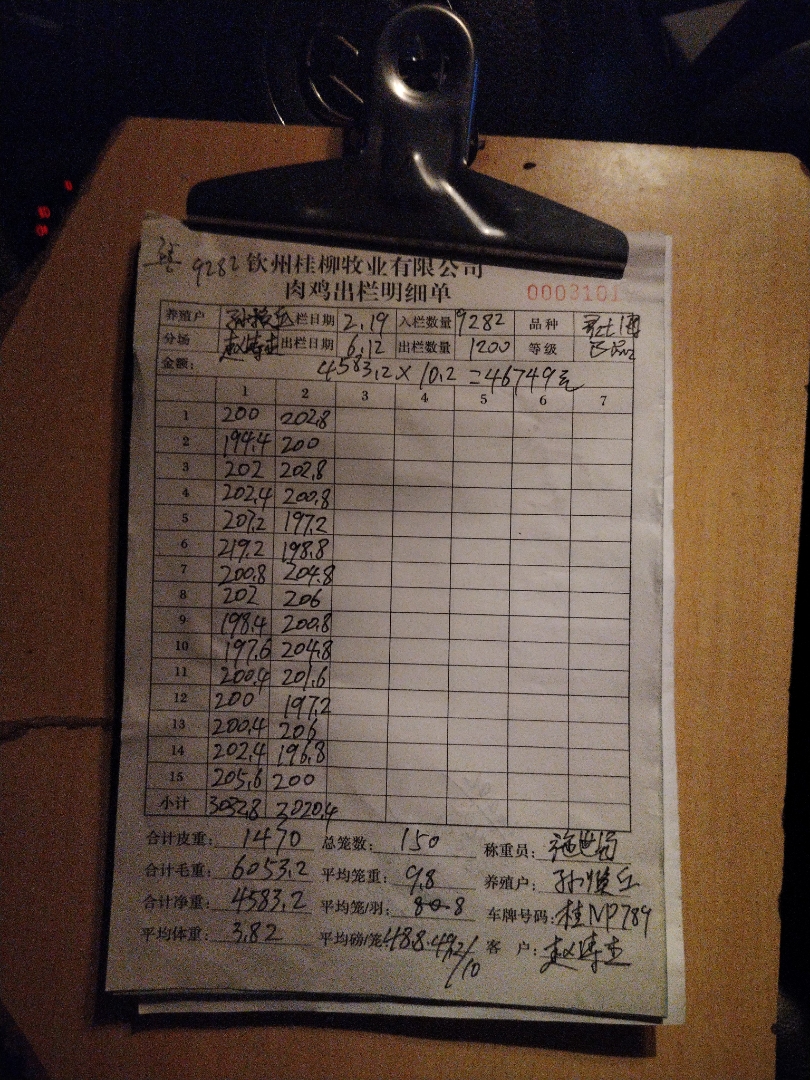 9282 钦州桂柳牧业有限公司
肉鸡出栏明细单 0003101
养殖户 栏日期 2.19 入栏数量 9282 品种
分场 出栏日期 6.12 出栏数量 1200 等级
金额: 4583.2×10.2=46749元
1 2 3 4 5 6 7
1 200 202.8
2 194.4 200
3 202 202.8
4 202.4 200.8
5 207.2 197.2
6 219.2 198.8
7 200.8 204.8
8 202 206
9 198.4 200.8
10 197.6 204.8
11 200.4 201.6
12 200 197.2
13 200.4 206
14 202.4 196.8
15 205.6 200
小计 3032.8 3020.4
合计皮重: 1470 总笼数: 150 称重员:
合计毛重: 6053.2 平均笼重: 9.8 养殖户:
合计净重: 4583.2 平均笼/羽: 8 车牌号码: 桂NP789
平均体重: 3.82 平均磅/笼 客户: